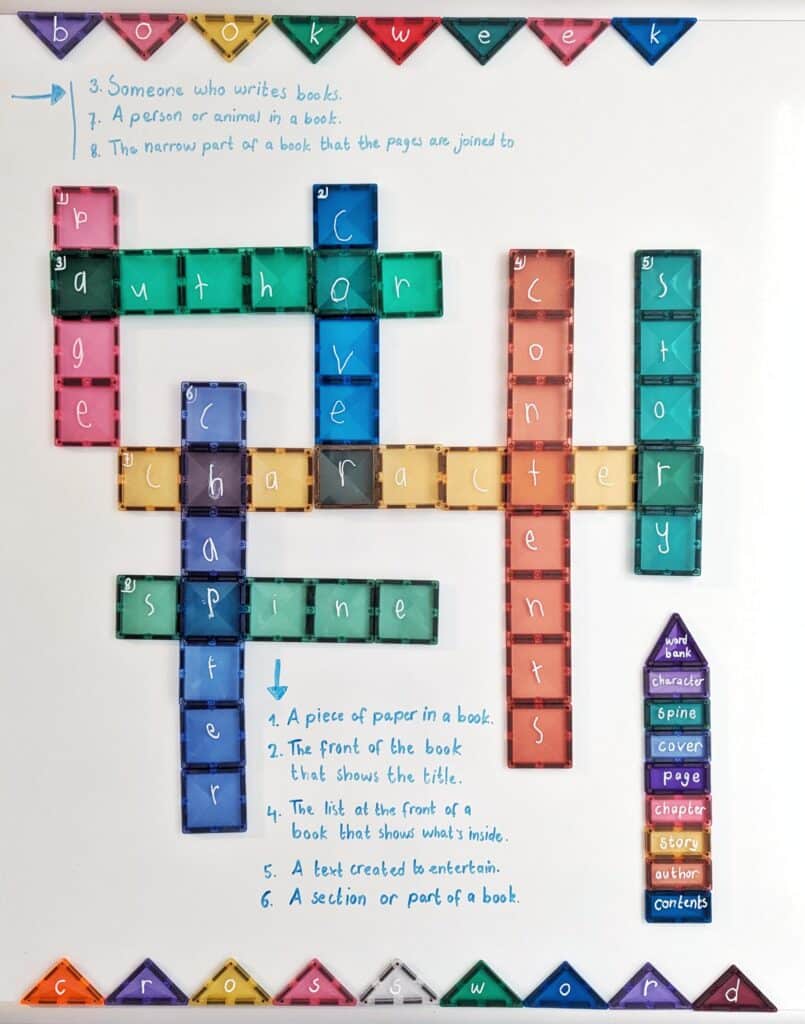 book week
3. Someone who writes books.
7. A person or animal in a book.
8. The narrow part of a book that the pages are joined to
1) page
2) Cover
3) author
4) Contents
5) story
6) Chapter
7) Character
8) spine
1. A piece of paper in a book.
2. The front of the book
that shows the title.
4. The list at the front of a
book that shows what's inside.
5. A text created to entertain.
6. A section or part of a book.
word
bank
character
spine
cover
page
chapter
story
author
contents
crossword